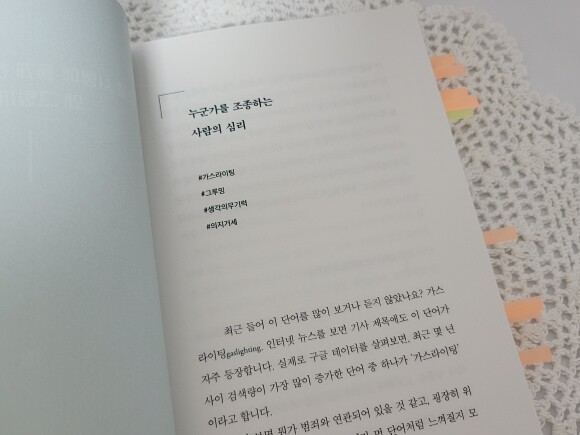 누군가를 조종하는
사람의 심리
#가스라이팅
#그루밍
#생각의무기력
#의지거세
최근 들어 이 단어를 많이 보거나 듣지 않았나요? 가스
라이팅gaslighting. 인터넷 뉴스를 보면 기사 제목에도 이 단어가
자주 등장합니다. 실제로 구글 데이터를 살펴보면, 최근 몇 년
사이 검색량이 가장 많이 증가한 단어 중 하나가 '가스라이팅'
이라고 합니다.
보면 뭔가 범죄와 연관되어 있을 것 같고, 굉장히 위
먼 단어처럼 느껴질지 모